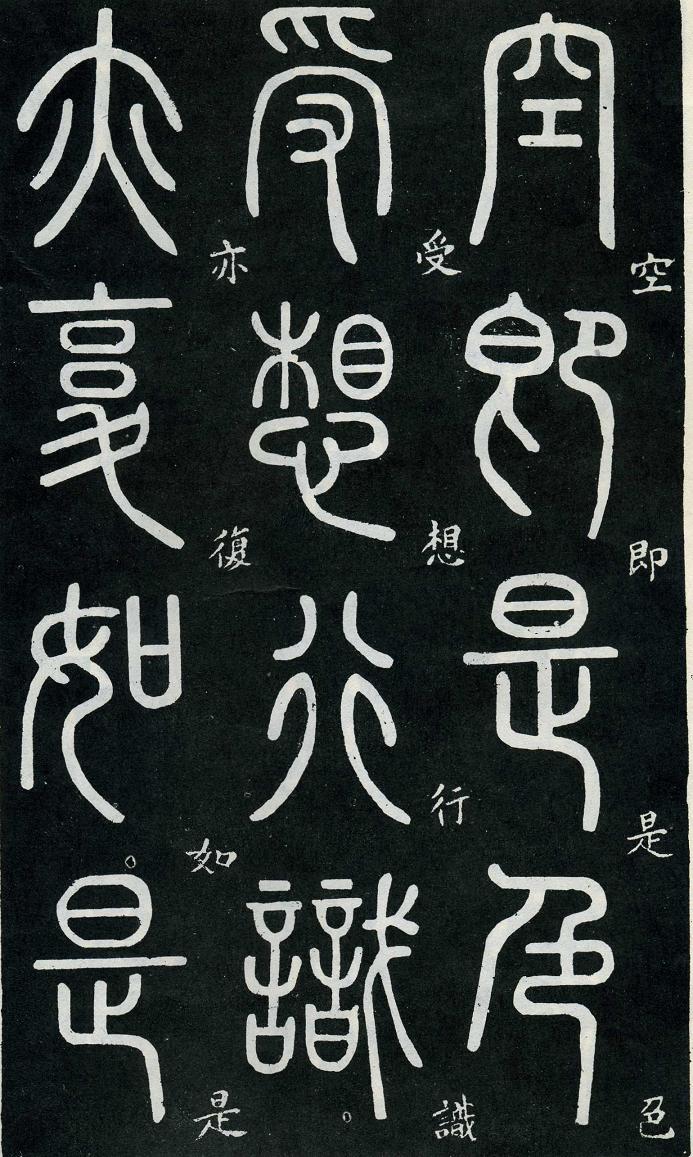 空即是色
受想行識。
亦復如。是